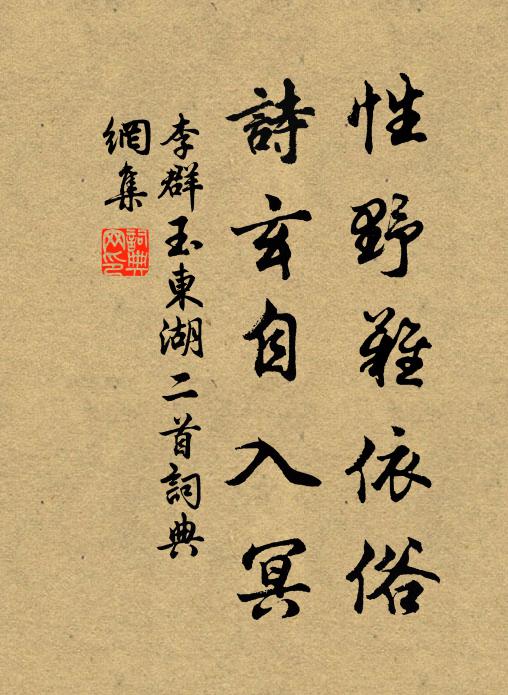 性野難依俗
詩玄自入冥
李群玉東湖二首詞典
網集
詞典
网印